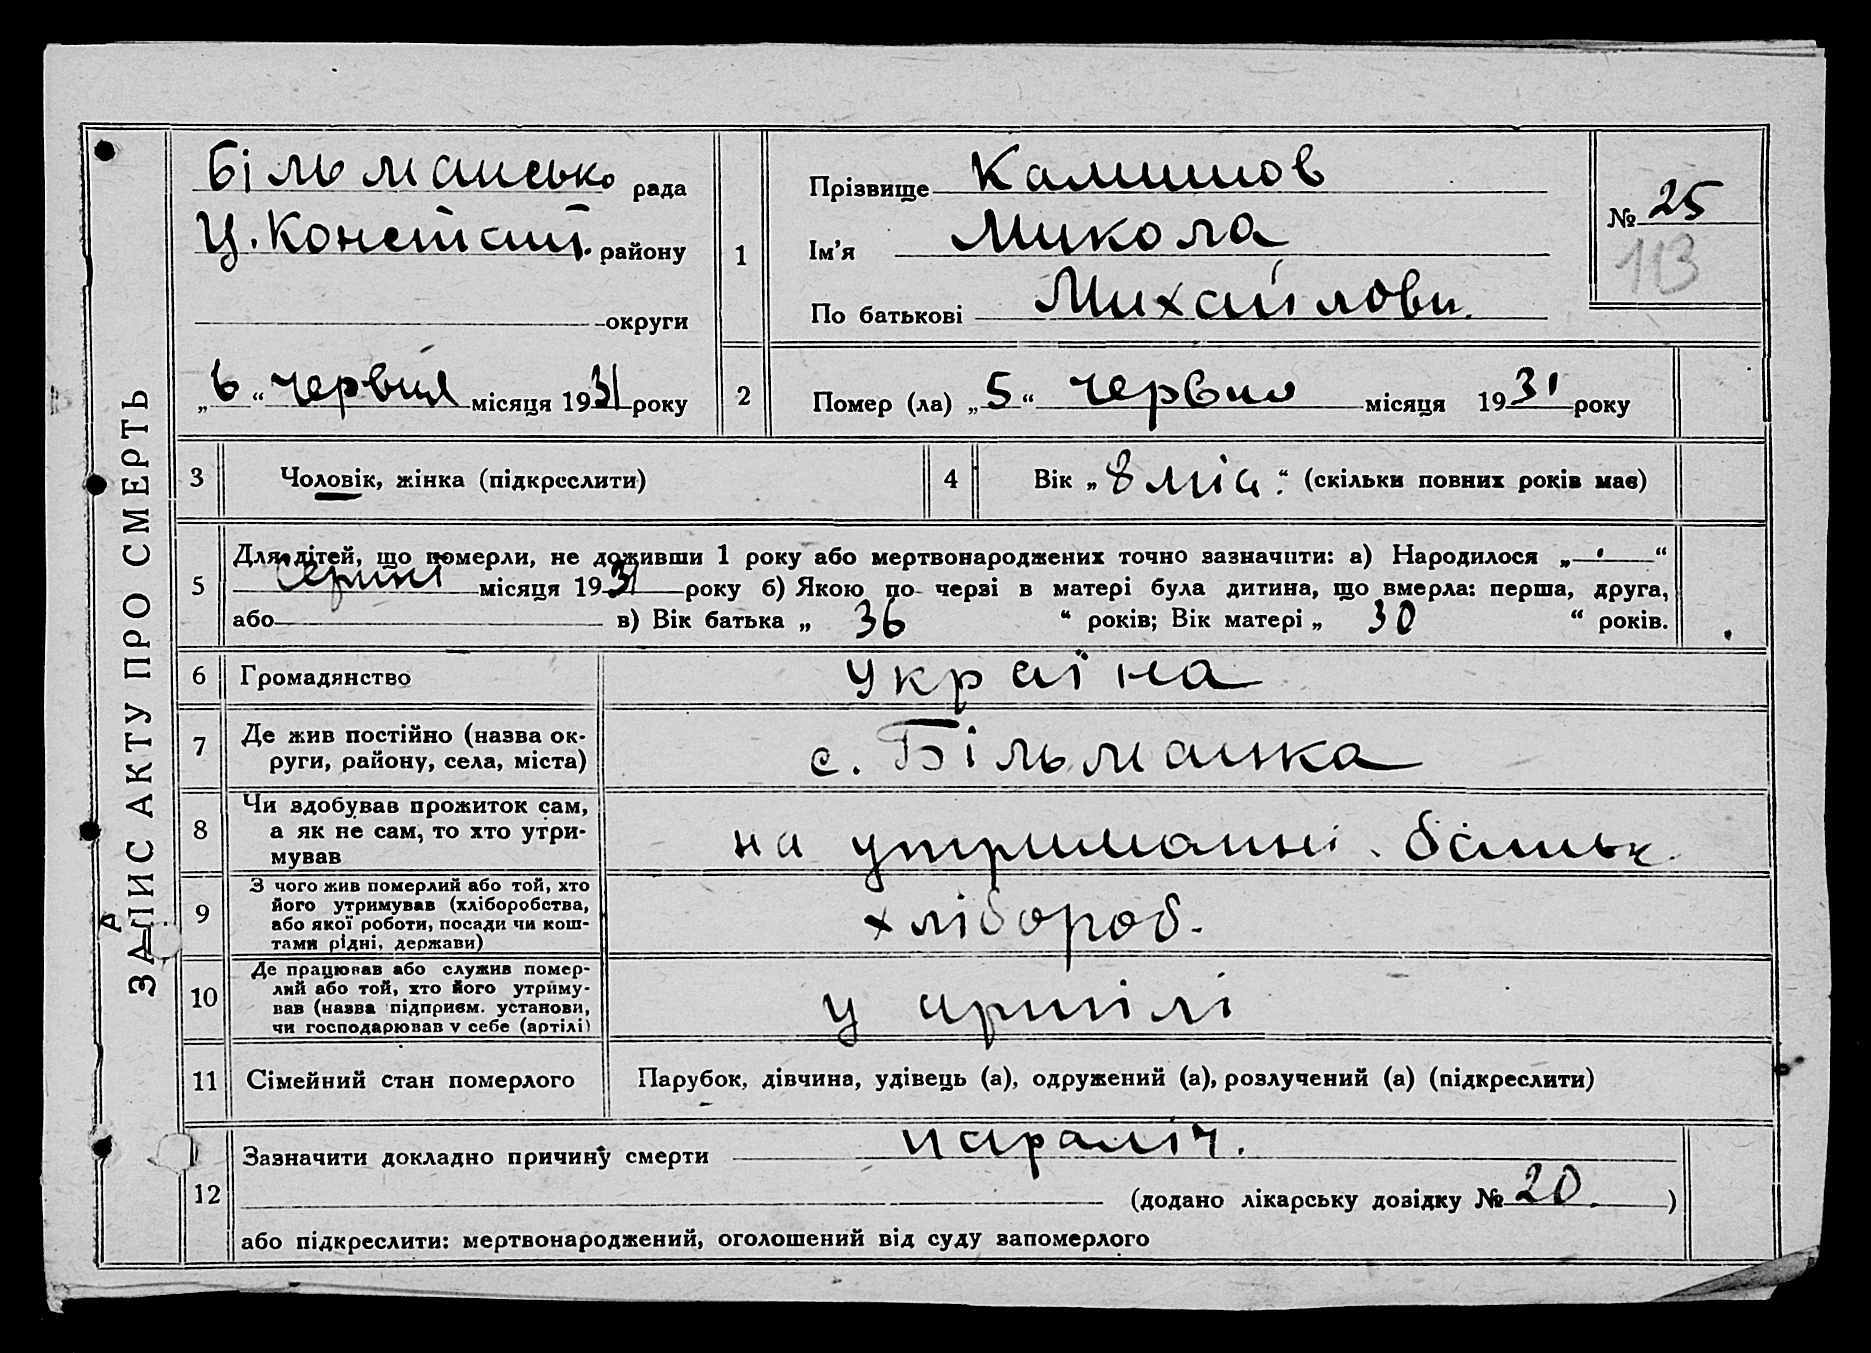 ЗАПИС АКТУ ПРО СМЕРТЬ
Більмансько рада
Ц. Констант. району
округи
„6“ червця місяця 1931 року
1
Прізвище Калминов
Ім'я Микола
По батькові Михайлови.
№ 25
113
2
Помер (ла) „5“ червця місяця 1931 року
3
Чоловік, жінка (підкреслити)
4
Вік „8 міс.“ (скільки повних років має)
5
Для дітей, що померли, не доживши 1 року або мертвонароджених точно зазначити: а) Народилося „—“
серпні місяця 1931 року б) Якою по черзі в матері була дитина, що вмерла: перша, друга,
або в) Вік батька „ 36 “ років; Вік матері „ 30 “ років.
6
Громадянство
україна
7
Де жив постійно (назва ок-
руги, району, села, міста)
с. Більманка
8
Чи здобував прожиток сам,
а як не сам, то хто утри-
мував
на утриманні батьк
9
З чого жив померлий або той, хто
його утримував (хліборобства,
або якої роботи, посади чи кош-
тами рідні, держави)
хлібороб.
10
Де працював або служив помер-
лий або той, хто його утриму-
вав (назва підприєм. установи,
чи господарював у себе (артілі)
у артілі
11
Сімейний стан померлого
Парубок, дівчина, удівець (а), одружений (а), розлучений (а) (підкреслити)
12
Зазначити докладно причину смерти параліч.
(додано лікарську довідку № 20. )
або підкреслити: мертвонароджений, оголошений від суду запомерлого